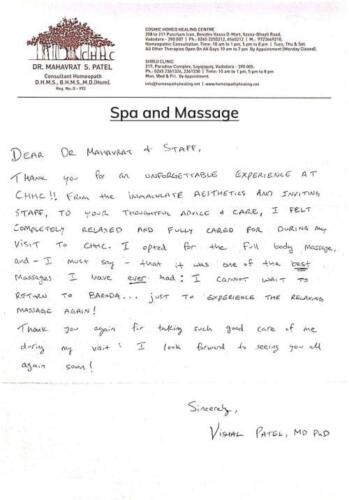 CHHC
DR. MAHAVRAT S. PATEL
Consultant Homeopath
D.H.M.S., B.H.M.S.,M.D.(Hom).
Reg. No. G -
COSMIC HOMEO HEALING CENTRE
Vadodara - 390 007
Homeopathic Consultation, Time: 10 am to 1 pm, 5 pm to 8 pm | Tues, Thu & Sat
All Other Therapies Open On All Days 10 am to 7 pm By Appointment (Monday Closed).
SHRIJI CLINIC
317, Paradise Complex, Sayajigunj, Vadodara - 390 005.
Ph.: 0265 2361326, 2361330 | Time: 10 am to 1 pm, 5 pm to 8 pm
Mon, Wed & Fri. By Appointment.
info@homeopathyhealing.net | www.homeopathyhealing.net
Spa and Massage
DEAR DR MAHAVRAT & STAFF,
THANK YOU FOR AN UNFORGETTABLE EXPERIENCE AT
CHHC!! FROM THE IMMACULATE AESTHETICS AND INVITING
STAFF, TO YOUR THOUGHTFUL ADVICE & CARE, I FELT
COMPLETELY RELAXED AND FULLY CARED FOR DURING MY
VISIT TO CHHC. I OPTED FOR THE full body Massage,
and - I must say - that it was one of the best
Massages I have ever had! I CANNOT WAIT TO
RETURN TO BARODA... JUST TO EXPERIENCE THE RELAXING
MASSAGE AGAIN!
Thank you again for taking such good care of me
during my visit! I look forward to seeing you all
again soon!
Sincerely,
VISHAL PATEL, MD PhD